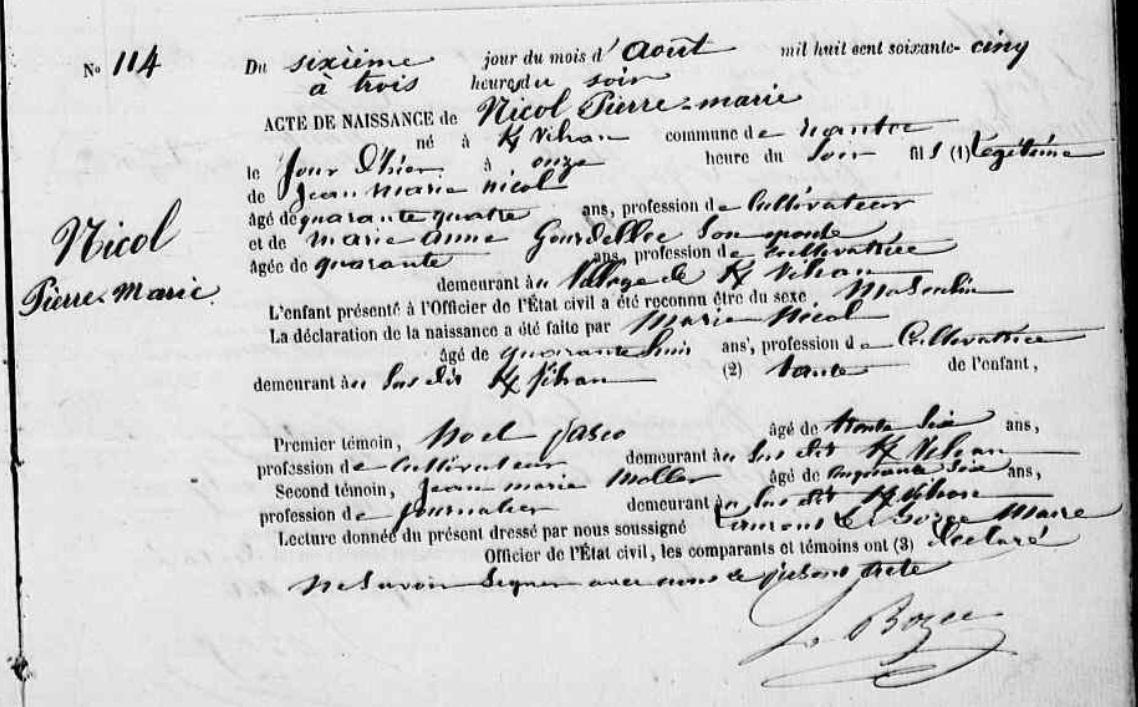 No 114
Du sixième jour du mois d'Août mil huit cent soixante-cinq
à trois heures du soir
ACTE DE NAISSANCE de Nicol Pierre-marie
né à K Vihan commune de
le Jour D'hier à onze heure du Soir fils (1) Légitime
de Jean Marie Nicol
âgé de quarante quatre ans, profession de Cultivateur
et de Marie Anne Gourdellec Son épouse
âgée de quarante ans, profession de Cultivatrice
demeurant au Village de K Vihan
L'enfant présenté à l'Officier de l'État civil a été reconnu être du sexe Masculin
La déclaration de la naissance a été faite par Marie Nicol
âgé de quarante huit ans, profession de Cultivatrice
demeurant au Sus dit K Vihan (2) tante de l'enfant,
Nicol
Pierre-Marie
Premier témoin, Noel Jasco âgé de trente Six ans,
profession de Cultivateur demeurant au Sus dit K Vihan
Second témoin, Jean-marie âgé de cinquante Six ans,
profession de Journalier demeurant au Sus dit K Vihan
Lecture donnée du présent dressé par nous soussigné Le Bozec Maire
Officier de l'État civil, les comparants et témoins ont (3) déclaré
ne Savoir Signer avec nous le présent acte
Le Bozec